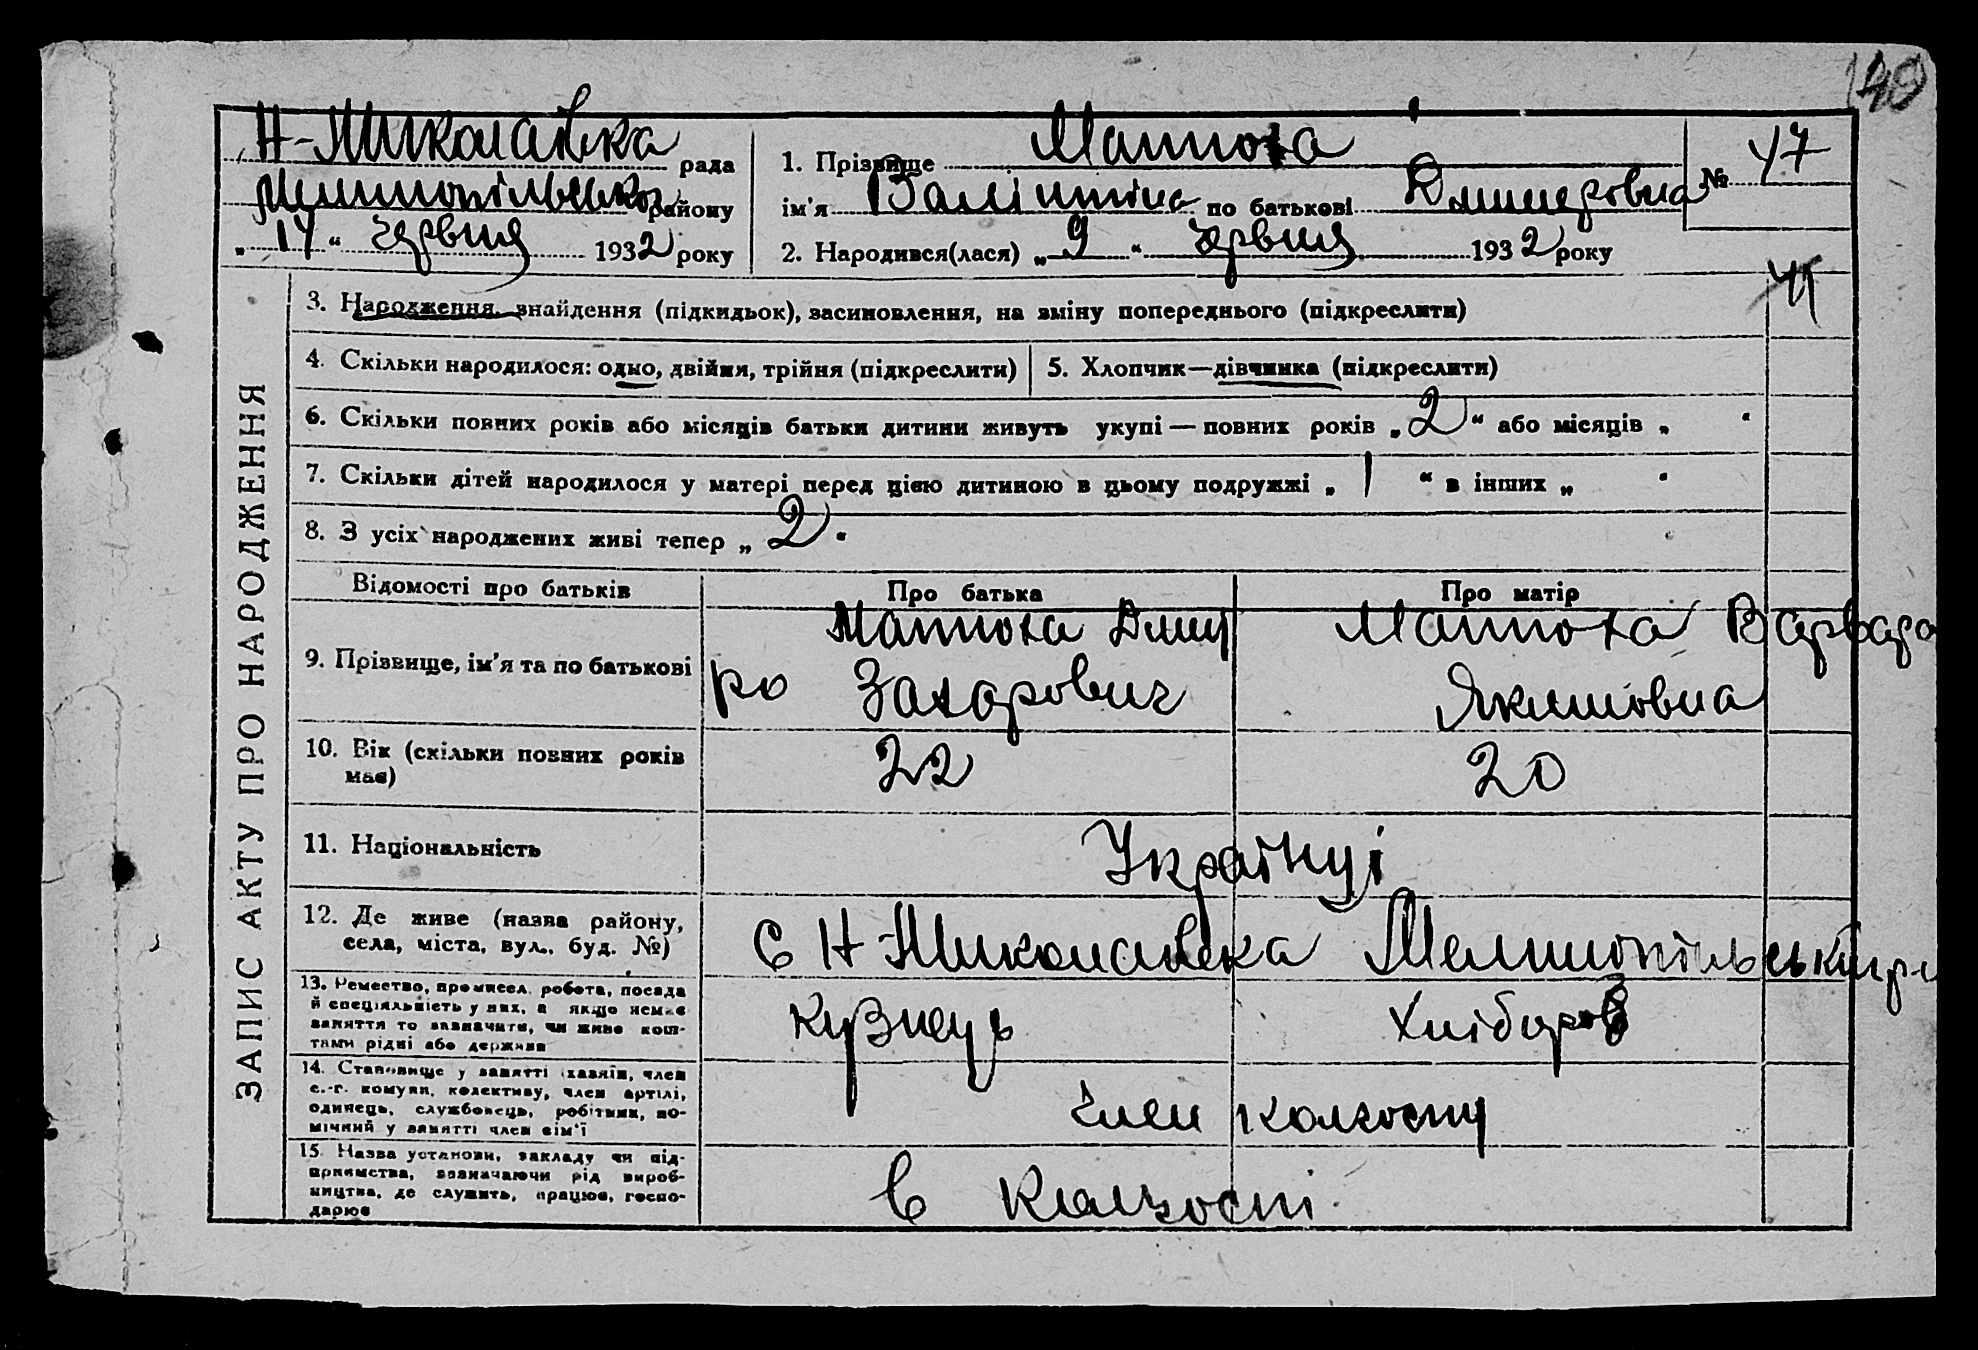 149
Н-Миколаївка рада
Мелитопільськог району
„ 14 “ червня 1932 року
1. Прізвище Матюха
ім'я Валінтіна по батькові Дмитровна
2. Народився(лася) „ 9 “ червня 1932 року
№ 47
ЗАПИС АКТУ ПРО НАРОДЖЕННЯ
3. Народження, знайдення (підкидьок), засиновлення, на зміну попереднього (підкреслити)
4. Скільки народилося: одно, двійня, трійня (підкреслити)
5. Хлопчик—дівчинка (підкреслити)
6. Скільки повних років або місяців батьки дитини живуть укупі — повних років „ 2 “ або місяців „ “
7. Скільки дітей народилося у матері перед цією дитиною в цьому подружжі „ 1 “ в інших „ “
8. З усіх народжених живі тепер „ 2 “
Відомості про батьків
Про батька
Про матір
9. Прізвище, ім'я та по батькові
Матюха Дмит
ро Захарович
Матюха Варвара
Якимовна
10. Вік (скільки повних років
має)
22
20
11. Національність
Українці
12. Де живе (назва району,
села, міста, вул., буд. №)
С Н-Миколаївка Мелитопільський р-н
13. Ремество, промисел, робота, посада
й спеціяльність у них, а якщо немає
заняття то зазначити, чи живе кош-
тами рідні або держави
Кузнець
Хлібороб
14. Становище у занятті (хазяїн, член
с.-г. комуни, колективу, член артілі,
одинець, службовець, робітник, по-
мічний у занятті член сім'ї
Член колхоспу
15. Назва установи, закладу чи під-
приємства, зазначаючи рід вироб-
ництва, де служить, працює, госпо-
дарює
в Колхоспі